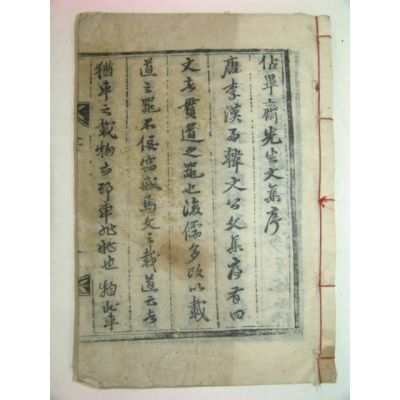 佔畢齋先生文集序
唐李漢爲韓文公文集序首曰
文者貫道之器也後儒多改以載
道之器不佞竊惑焉文之載道云者
猶車之載物云耶車非物也物非車